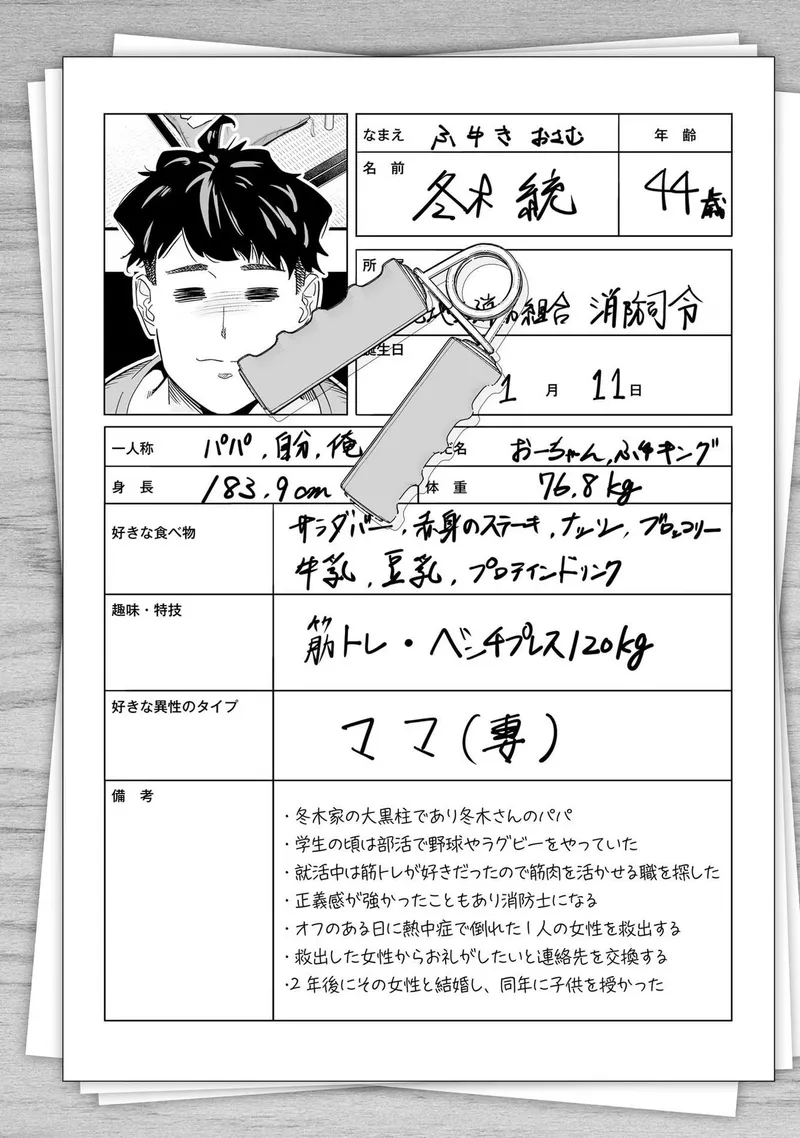 なまえ ふゆき おさむ
年齢
名前 冬木 統
44歳
所
組合 消防司令
誕生日
1月11日
一人称 パパ，自分，俺
名 おーちゃん，ふゆキング
身長 183.9cm
体重 76.8kg
好きな食べ物 サラダバー，赤身のステーキ，ナッツ，ブロッコリー
牛乳，豆乳，プロテインドリンク
趣味・特技 筋トレ・ベンチプレス120kg
好きな異性のタイプ ママ（妻）
備考
・冬木家の大黒柱であり冬木さんのパパ
・学生の頃は部活で野球やラグビーをやっていた
・就活中は筋トレが好きだったので筋肉を活かせる職を探した
・正義感が強かったこともあり消防士になる
・オフのある日に熱中症で倒れた1人の女性を救出する
・救出した女性からお礼がしたいと連絡先を交換する
・2年後にその女性と結婚し、同年に子供を授かった